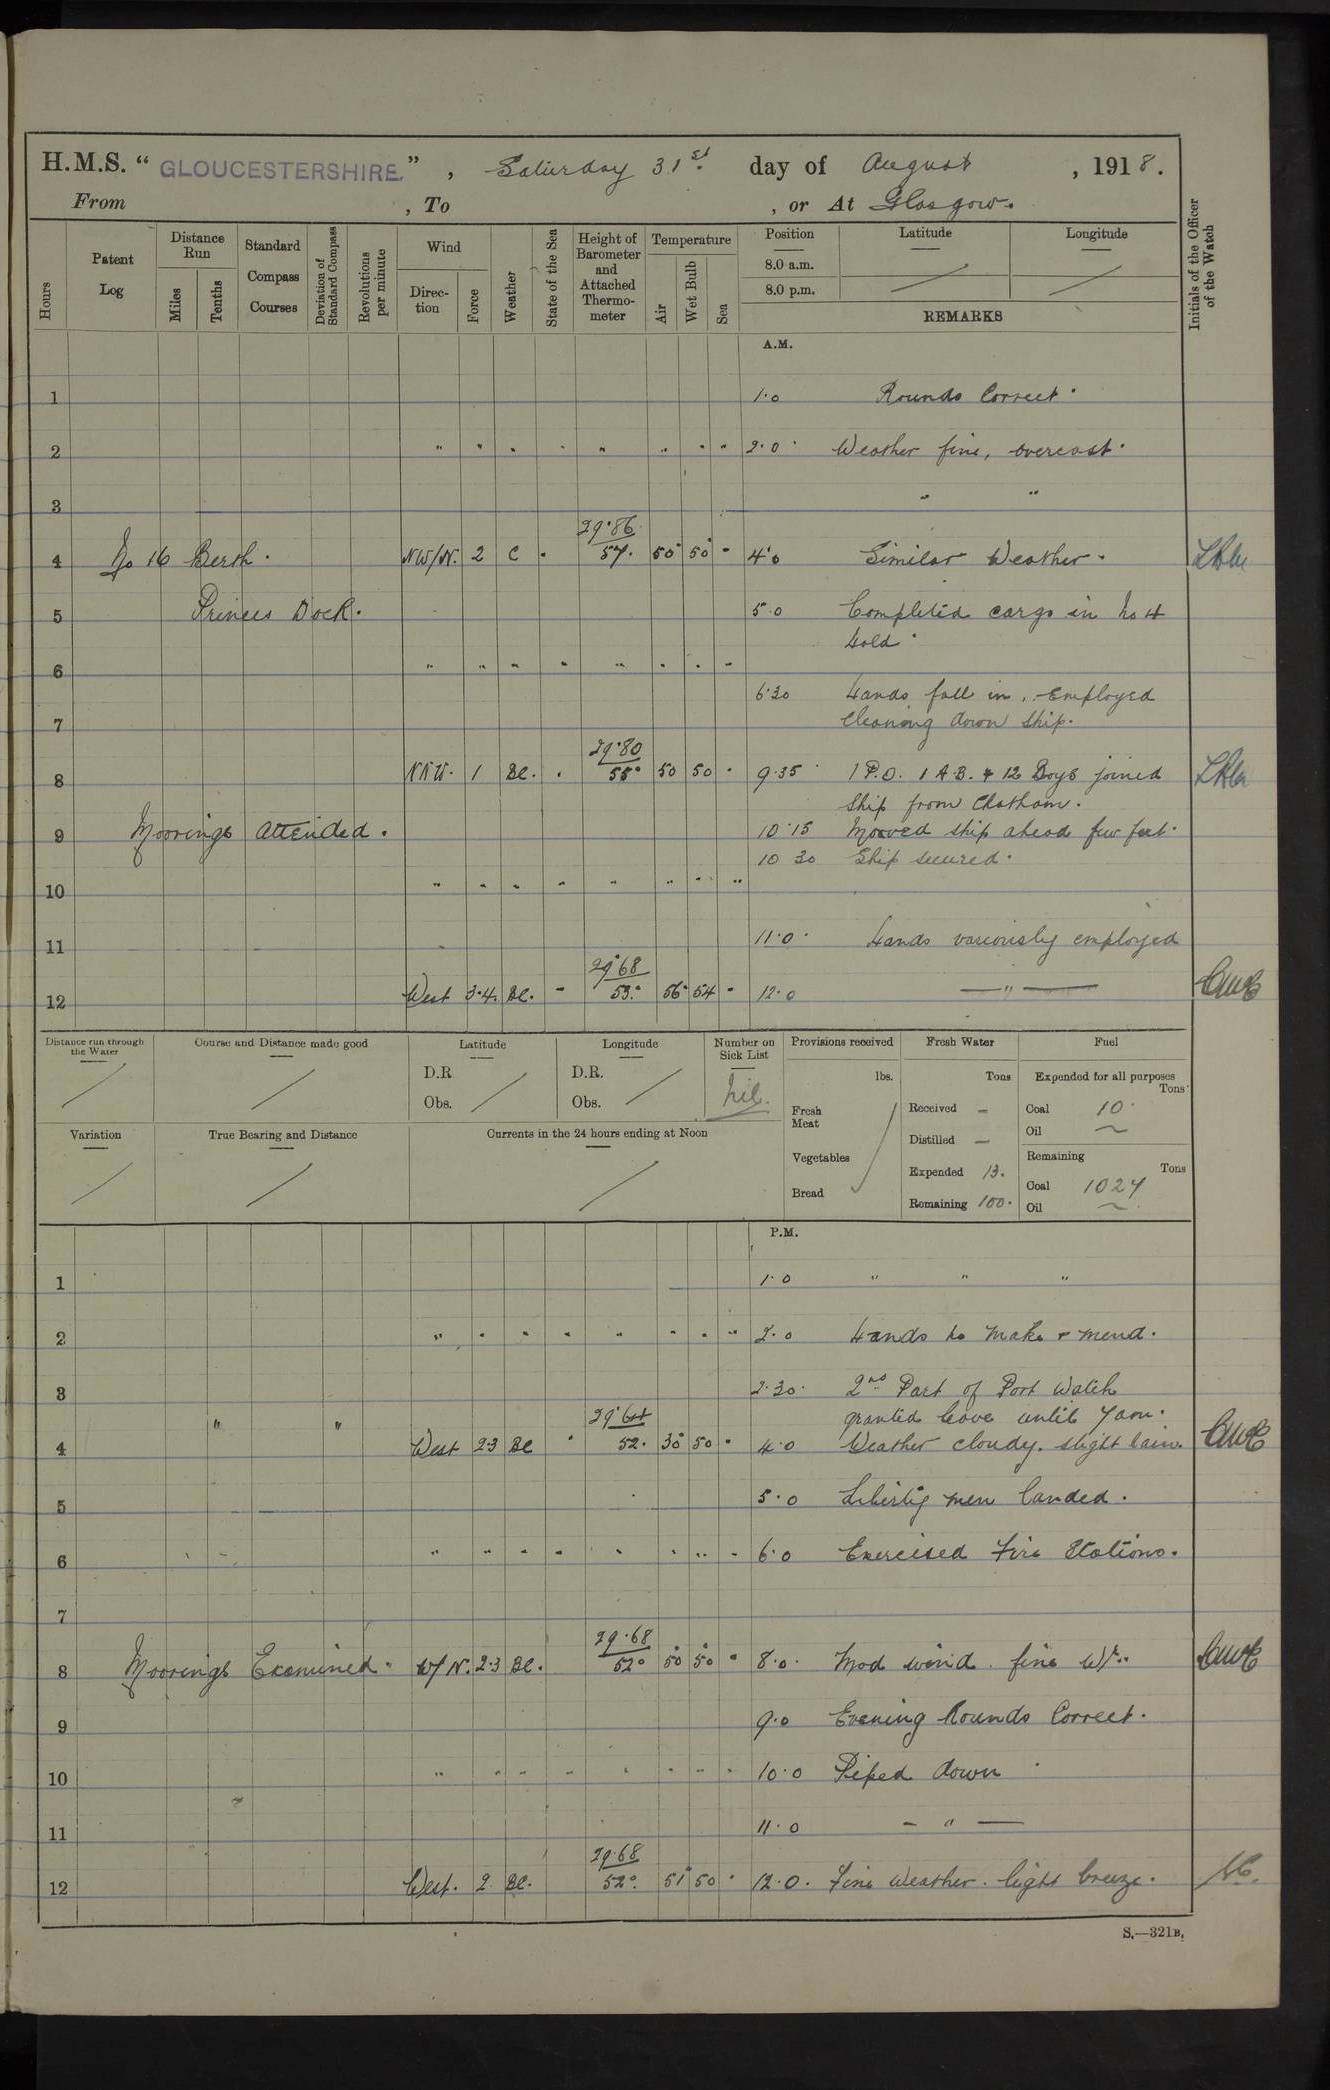 H.M.S. “ GLOUCESTERSHIRE. ” , Saturday 31st day of August , 1918.
From , To , or At Glasgow.
Hours
Patent Log
Distance Run
Miles
Tenths
Standard Compass Courses
Deviation of Standard Compass
Revolutions per minute
Wind
Direction
Force
Weather
State of the Sea
Height of Barometer and Attached Thermometer
Temperature
Air
Wet Bulb
Sea
Position
8.0 a.m.
8.0 p.m.
Latitude
Longitude
REMARKS
Initials of the Officer of the Watch
A.M.
1 1.0 Rounds Correct.
2 " " " " " " " " 2.0 Weather fine, overcast.
3 " "
29.86
4 No 16 Berth. NW/N. 2 C 57. 50 50 4.0 Similar Weather.
5 Princes Dock. 5.0 Completed cargo in No 4
Hold.
6 " " " " " " " "
6.30 Hands fall in. Employed
7 Cleaning down ship.
29.80
8 NNW. 1 BC. 55° 50 50 9.35 1 P.O. 1 A.B. & 12 Boys joined
Ship from Chatham.
9 Moorings attended. 10.15 Mooved ship ahead few feet.
10 30 Ship secured.
10 " " " " " " " "
11 11.0 Hands variously employed
29.68
12 West 3.4. BC. - 53° 56° 54 12.0 — " —
Distance run through the Water
Course and Distance made good
Latitude
D.R
Obs.
Longitude
D.R.
Obs.
Number on Sick List
Nil.
Provisions received
lbs.
Fresh Meat
Vegetables
Bread
Fresh Water
Tons
Received -
Distilled —
Expended 13.
Remaining 100.
Fuel
Expended for all purposes
Tons
Coal 10.
Oil ~
Remaining
Tons
Coal 1027
Oil ~
Variation
True Bearing and Distance
Currents in the 24 hours ending at Noon
P.M.
1 1.0 " " "
2 " " " " " " " " 2.0 Hands to make & mend.
3 2.30. 2nd Part of Port Watch
" " granted leave until 7am.
4 West 23 BC 52. 50 4.0 Weather cloudy. slight rain.
5 5.0 Liberty men landed.
6 " " " " " " " " 6.0 Exercised Fire Stations.
7
29.68
8 Moorings Examined. W/N. 2.3 BC. 52° 50 50 8.0. Mod wind fine Wr.
9 9.0 Evening Rounds Correct.
10 " " " " " " " " 10.0 Piped down
11 11.0 — " —
29.68
12 West. 2 BC. 52°. 51° 50 12.0. Fine Weather. light breeze.
S.—321B.